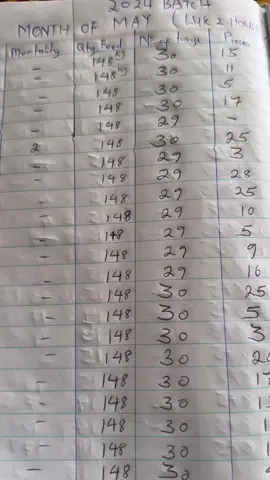 2024 BATCH
MONTH OF MAY (Lyk 2 House
Mortality Qty Feed No of trays Pieces
- 148kg 30 15
- 148kg 30 11
- 148 30 5
- 148 30 17
- 148 29 -
2 148 30 25
- 148 29 3
- 148 29 28
- 148 29 25
- 148 29 10
- 148 29 5
- 148 29 9
- 148 29 16
- 148 30 25
- 148 30 5
- 148 30 3
- 148 30
- 148 30
- 148 30
- 148 30
- 148 30
- 148 30